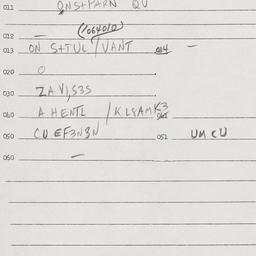 011 ONS+PARN QU
(064010)
012 —
013 ON S+TUL / VANT 014 —
020 O
030 ZAVI,S3S
040 A HENTL / KLSAMK3 041
050 CU EF3N3N 051 UM CU
060 —